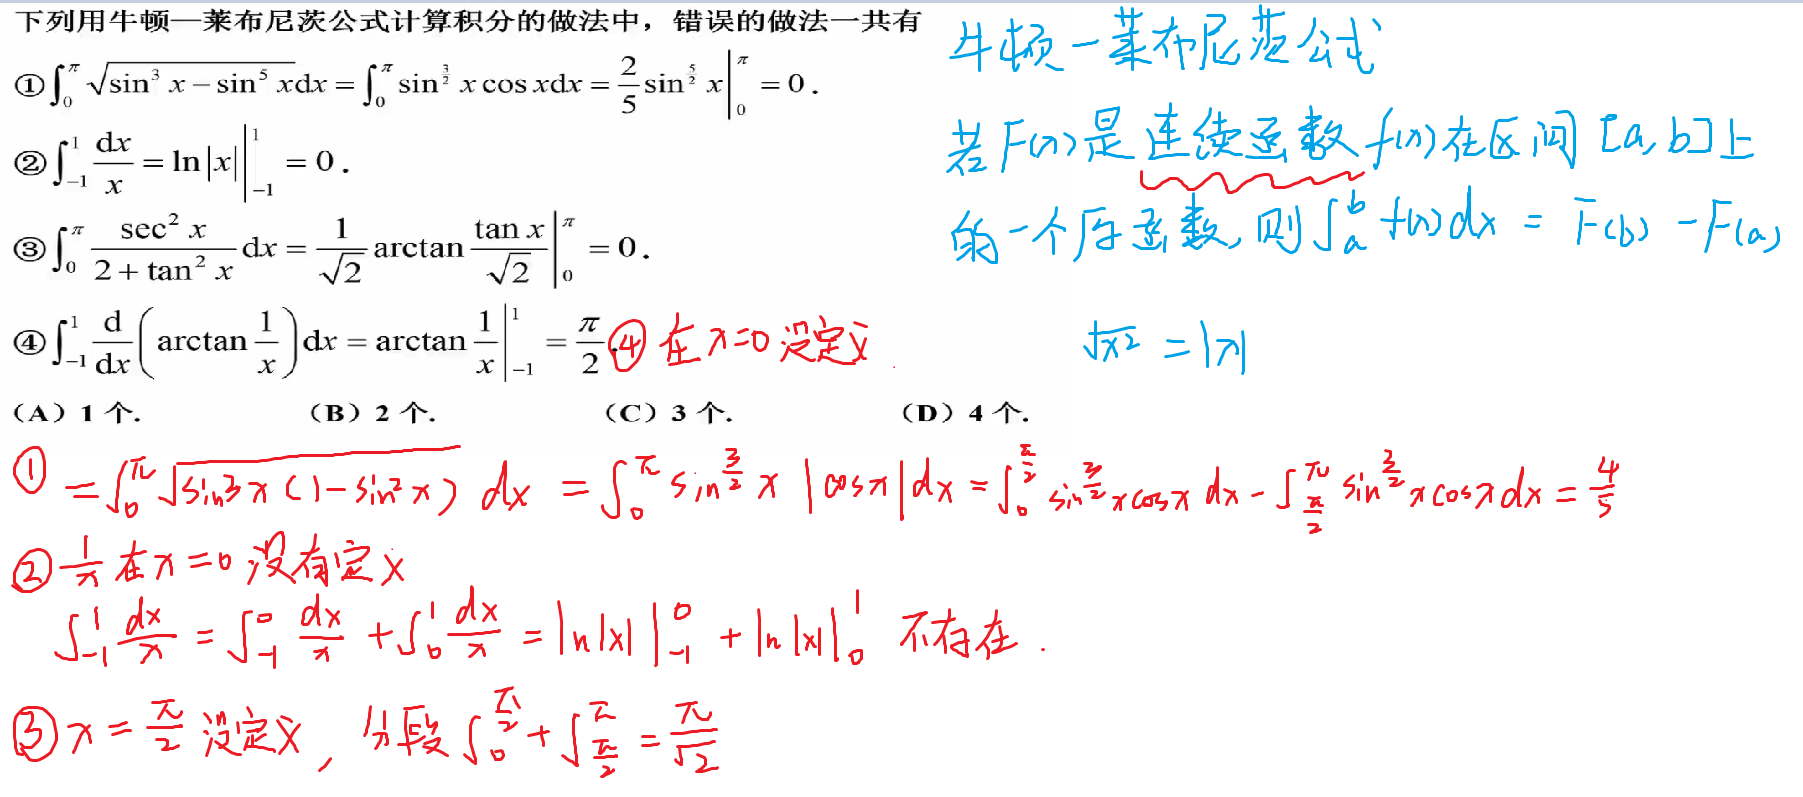 下列用牛顿—莱布尼茨公式计算积分的做法中，错误的做法一共有
①∫₀^π √(sin³ x − sin⁵ x) dx = ∫₀^π sin^(3/2) x cos x dx = 2/5 sin^(5/2) x |₀^π = 0.
②∫₋₁^1 dx/x = ln|x| |₋₁^1 = 0.
③∫₀^π sec² x/(2 + tan² x) dx = 1/√2 arctan (tan x/√2) |₀^π = 0.
④∫₋₁^1 d/dx (arctan 1/x) dx = arctan 1/x |₋₁^1 = π/2.
④在x=0没定义
(A) 1 个.    (B) 2 个.    (C) 3 个.    (D) 4 个.
牛顿-莱布尼茨公式
若F(x)是连续函数f(x)在区间[a,b]上
的一个原函数,则∫ₐ^b f(x)dx = F(b) - F(a)
√x² = |x|
① = ∫₀^π √(sin³x(1-sin²x)) dx = ∫₀^π sin^(3/2) x |cosx| dx = ∫₀^(π/2) sin^(3/2) x cosx dx - ∫_(π/2)^π sin^(3/2) x cosx dx = 4/5
② 1/x 在x=0没有定义
∫₋₁^1 dx/x = ∫₋₁^0 dx/x + ∫₀^1 dx/x = ln|x| |₋₁^0 + ln|x| |₀^1 不存在.
③ x = π/2 没定义, 分段 ∫₀^(π/2) + ∫_(π/2)^π = π/√2